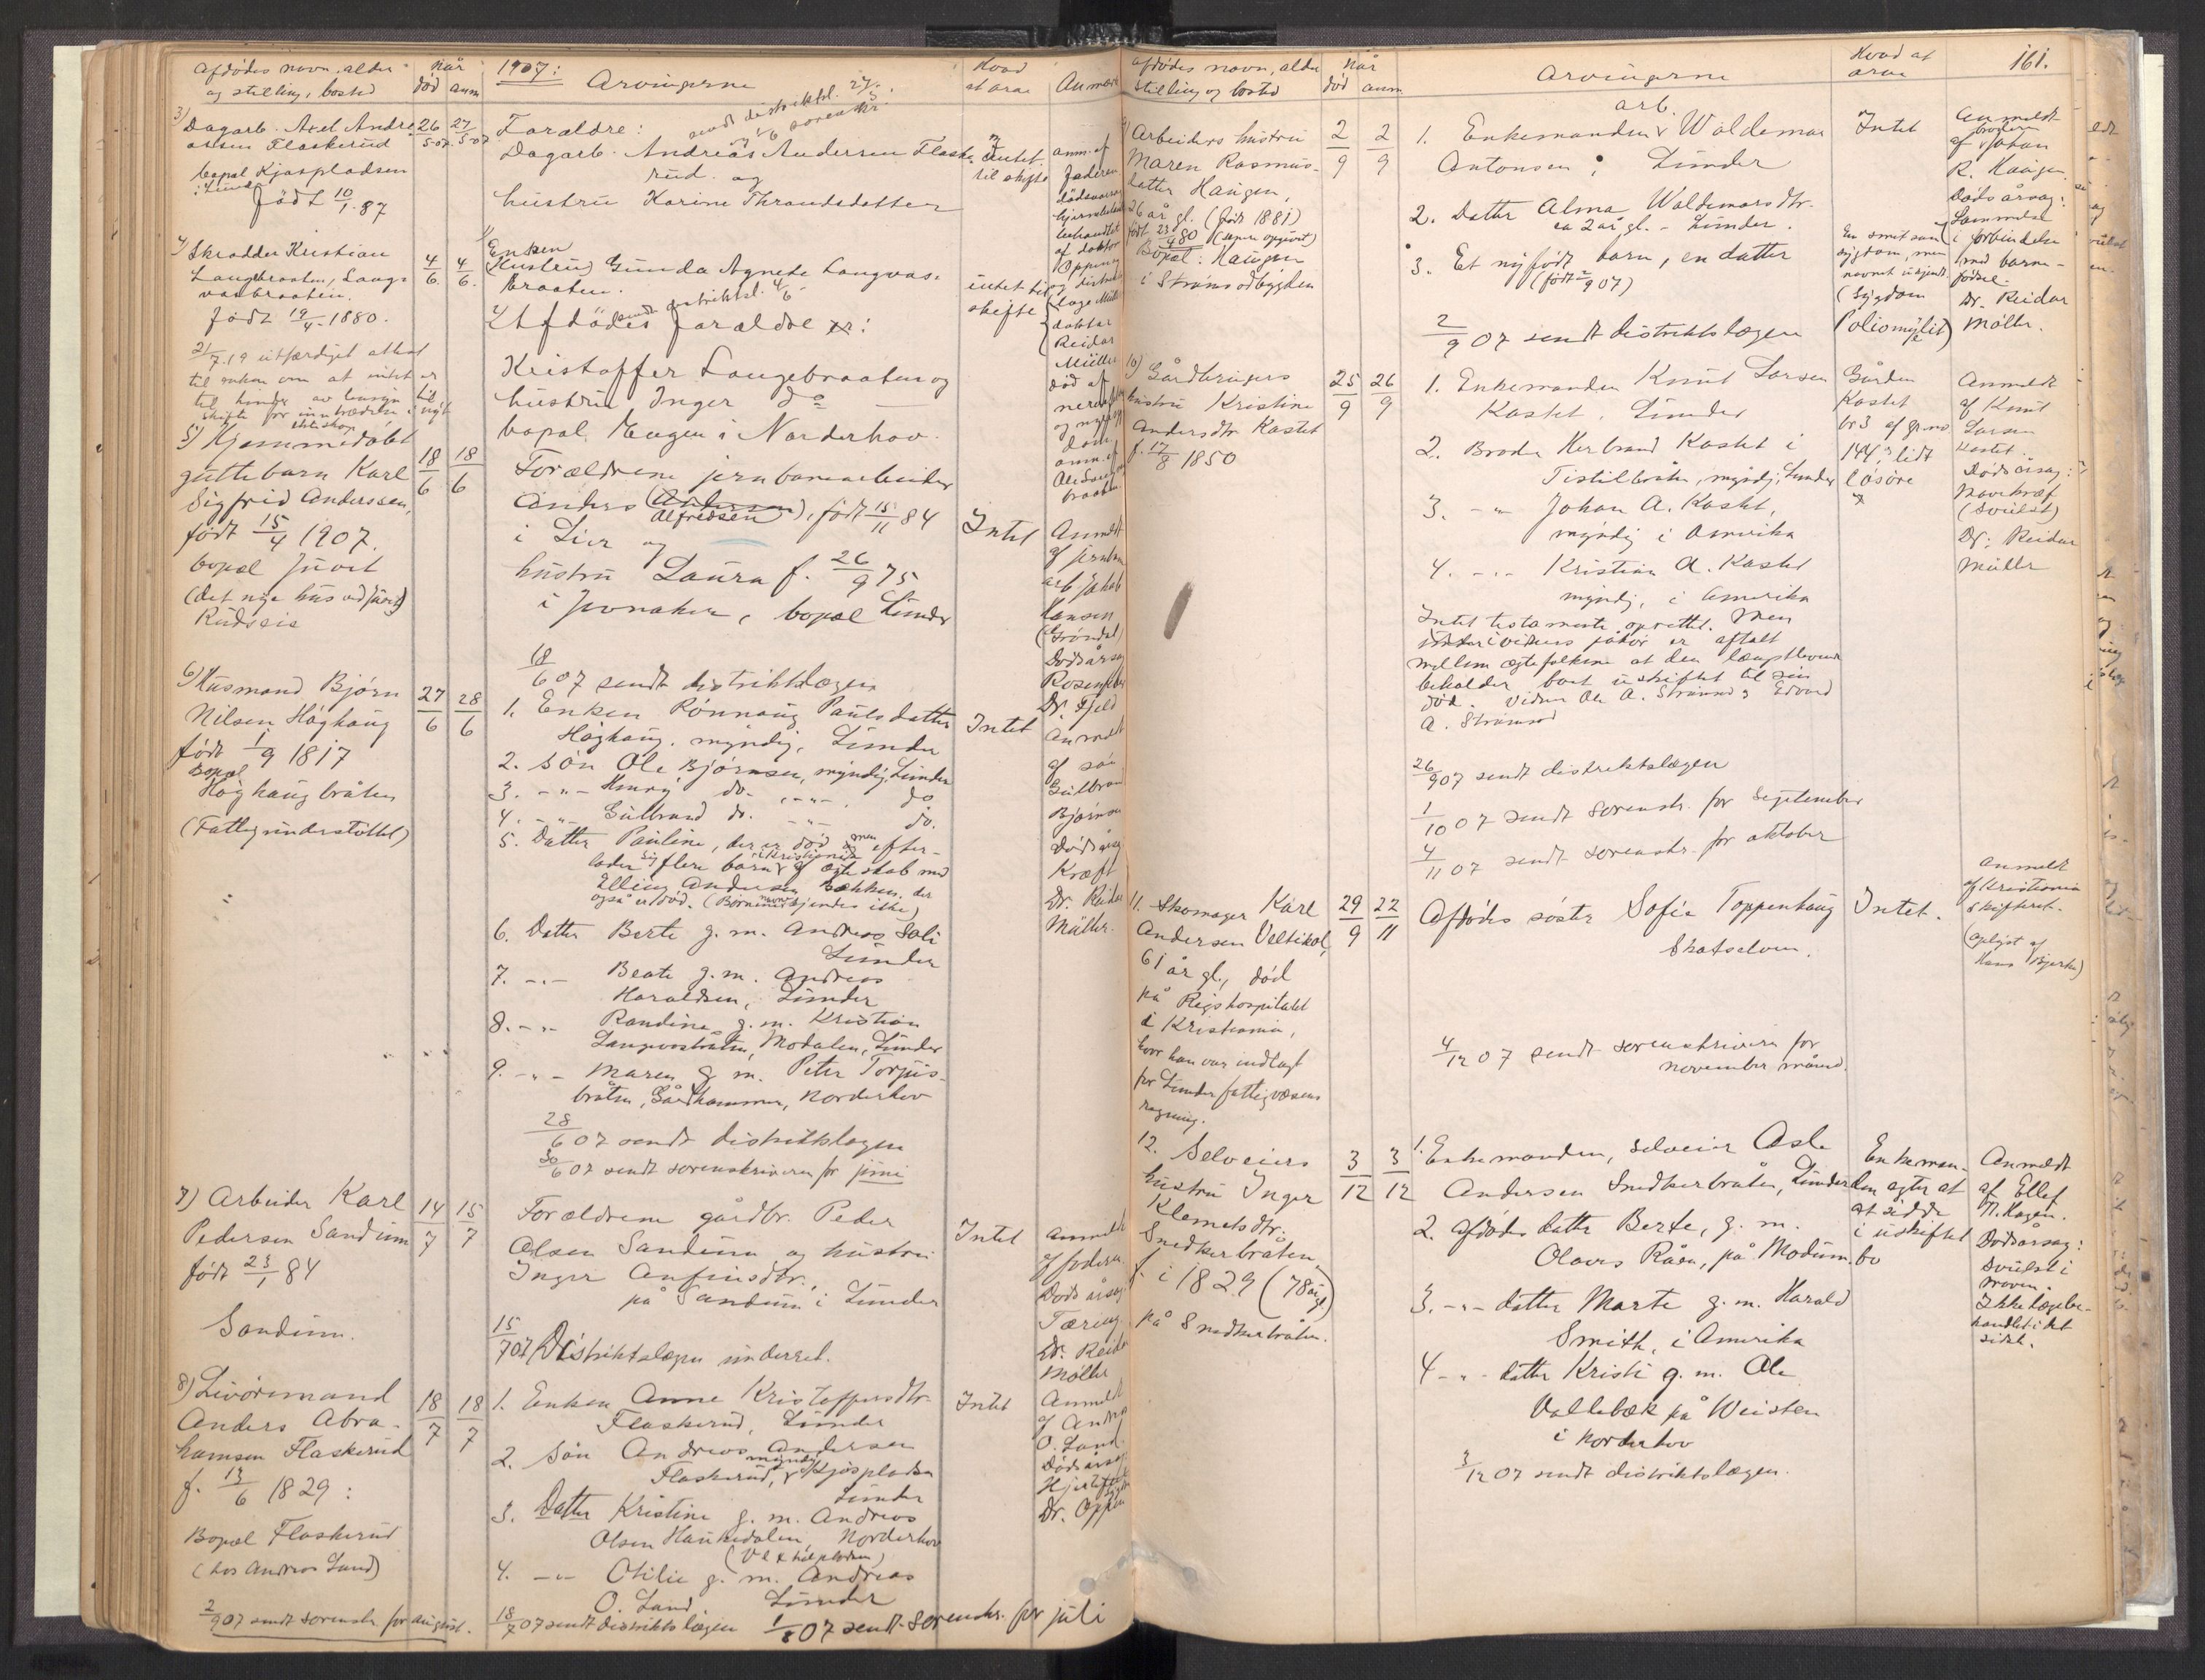 Afdødes navn, alder
og stilling, bosted
Når
død anm
1907:
Arvingerne
Hvad
at arve
Anmærk
3)
Dagarb. Axel Andre-
assen Flaskerud
bopæl Kjøspladsen
i Lunder
født 10/1. 87
26/5 07
27/5 07
Forældre:
sendt distriktsl. 27/5
Dagarb. Andreas Andersen Flaske-
rud og
hustru Karine Thrandsdatter
Intet
til skifte
anm. af
faderen
behandlet
af doktor
Oppen
4)
Skrædder Kristian
Langebraaten, Langs-
vasbraaten.
født 19/4. 1880.
4/6
4/6.
21/7.19 utfærdiget attest
til enken om at intet er
til hinder av hensyn til
skifte for inntrædelse i nyt
ekteskap
Enken
(Hustru) Gunda Agnete Langvas-
braaten.
sendt distriktsl. 4/6
Afdødes forældre er:
Kristoffer Langebraaten og
hustru Inger do
bopæl Hagen i Norderhov.
intet til
skifte
doktor
Reidar
Müller
død af
5) Hjemmedøbt
guttebarn Karl
Sigfrid Anderssen,
født 15/4 1907.
bopæl Juvet
(det nye hus ved Juvet)
Rudseie
18/6
18/6
Forældrene jernbanearbeider
Anders (Andersen) Alfredsen, født 15/11 84
i Lier og
hustru Laura f. 26/9 75
i Jevnaker, bopæl Lunder
18/6 07 sendt distriktslægen
Intet
Anmeldt
af jernban
arb. Jakob
Hansen
(Grøndal)
Dødsårsag
Rosenfeber
Dr. Fjeld
6) Husmand Bjørn
Nilsen Høghaug
født 1/9 1817
Bopæl
Høghaugbråten
(Fattigunderstøttet)
27/6
28/6
1. Enken Rønnaug Paulsdatter
Høghaug, myndig, Lunder
2. Søn Ole Bjørnsen, myndig, Lunder
3. -"- Henry do. -"- do
4. -"- Gulbrand do. -"- do.
5. Datter Pauline, der er død men efter-
lader sig flere barn i Kristiania af egteskab med
Elling Andersen Bækken, der
også er død. (Børnenes navn kjendes ikke)
6. Datter Berte g. m. Andreas Soli
Lunder
7. -"- Beate g. m. Andreas
Haraldsen, Lunder
8. -"- Randine g. m. Kristian
Langvasbråten, Modalen, Lunder
9. -"- Maren g. m. Peter Torjus-
bråten, Gårdhammer, Norderhov
28/6 07 sendt distriktslægen
30/6 07 sendt sorenskriveren for juni
Intet
Anmeldt
af søn
Gulbrand
Bjørnsen
Dødsårsag
Kræft
Dr. Reidar
Müller.
7) Arbeider Karl
Pedersen Sandum
født 23/1 84
Sandum.
14/7
15/7
Forældrene gårdbr. Peder
Olsen Sandum og hustru
Inger Anfinsdtr.,
på Sandum i Lunder
15/7 07 Distriktslægen underret.
Intet
Anmeldt
af faderen
Dødsårsag
Tæring
Dr. Reidar
Møller
8) Livøremand
Anders Abra-
hamsen Flaskerud
f. 13/6 1829:
Bopæl Flaskerud
(hos Andreas Lund)
18/7
18/7
1. Enken Anne Kristoffersdtr.
Flaskerud, Lunder
2. Søn Andreas Andersen
Flaskerud, myndig, Kjøspladsen
Lunder
3. Datter Kristine g. m. Andreas
Olsen Haukedalen, Norderhov
4. -"- Otilie g. m. Andreas
O. Lund Lunder
Intet
Anmeldt
af Andreas
O. Lund
Dødsårsag
Dr. Oppen
2/9 07 sendt sorenskr. for august.
18/7 07 sendt distriktslægen 1/8 07 sendt sorenskr. for juli
Afdødes navn, alder
stilling og bosted
Når
død anm
Arvingerne
Hvad at
arve
161.
9) Arbeiders hustru
Maren Rasmus-
datter Haugen,
26 år gl. (født 1881)
født 23/4 80 (senere opgivet)
Bopæl: Haugen
i Strømsoddbygden
2/9
2/9
arb.
1. Enkemanden Waldemar
Antonsen i Lunder
2. Datter Alma Waldemarsdtr.
ca 2 år gl. - Lunder.
3. Et nyfødt barn, en datter
(født 2/9 07)
2/9 07 sendt distriktslægen
Intet
En smitsom
sygdom, men
navnet ukjendt.
(Sygdom
Poliomyelit)
Anmeldt
af broderen Johan
R. Haugen.
Dødsårsag:
Lammelse
i forbindelse
med barne-
fødsel.
Dr. Reidar
Møller.
10) Gårdbrugers
hustru Kristine
Andersdtr Kastet
f. 17/8 1850
25/9
26/9
1. Enkemanden Knut Larsen
Kastet, Lunder
2. Broder Herbrand Kastet i
Tistilbråten, myndig, Lunder
3. -"- Johan A. Kastet,
myndig i Amerika
4. -"- Kristian A. Kastet
myndig, i Amerika
Intet testamente oprettet. Men
i vidners påhør er aftalt
mellem egtefolkene at den længstlevende
beholder boet uskiftet til sin
død. Vidner Ole A. Strømsod & Edvard
A. Strømsod
26/9 07 sendt distriktslægen
1/10 07 sendt sorenskr. for September
4/11 07 sendt sorenskr. for oktober
Gården
Kastet
br 3 af gr. no
144, lidt
løsøre
Anmeldt
af Knut
Larsen
Kastet.
Dødsårsag:
Mavekræf
(Svulst)
Dr. Reidar
Müller
11. Skomager Karl
Andersen Veltikol,
61 år gl., død
på Rigshospitalet
i Kristiania,
hvor han var indlagt
for Lunder fattigvæsens
regning.
29/9
22/11
Afdødes søster Sofie Toppenhaug
Skotselven.
Intet.
Anmeldt
af Kristiania
skifteret.
(Oplyst af
Hans Bjerke)
4/12 07 sendt sorenskriveren for
november måned.
12. Selveiers
hustru Inger
Klemetsdtr.
Snedkerbråten
f. i 1829 (78 år gl)
på Snedkerbråten.
3/12
3/12
1. Enkemanden, selveier Asle
Andersen Snedkerbråten, Lunder
2. Afdødes datter Berte, g. m.
Olaves Råen, på Modum.
3. -"- datter Marte g. m. Harald
Smith, i Amerika
4 -"- datter Kristi g. m. Ole
Vallebæk på Weisten
i Norderhov
3/12 07 sendt distriktslægen.
Enkeman-
den agter at
at sidde
i uskiftet
bo
Anmeldt
af Ellef
N. Hagen.
Dødsårsag:
Svulst i
maven.
Ikke lægebe-
handlet i det
sidste.